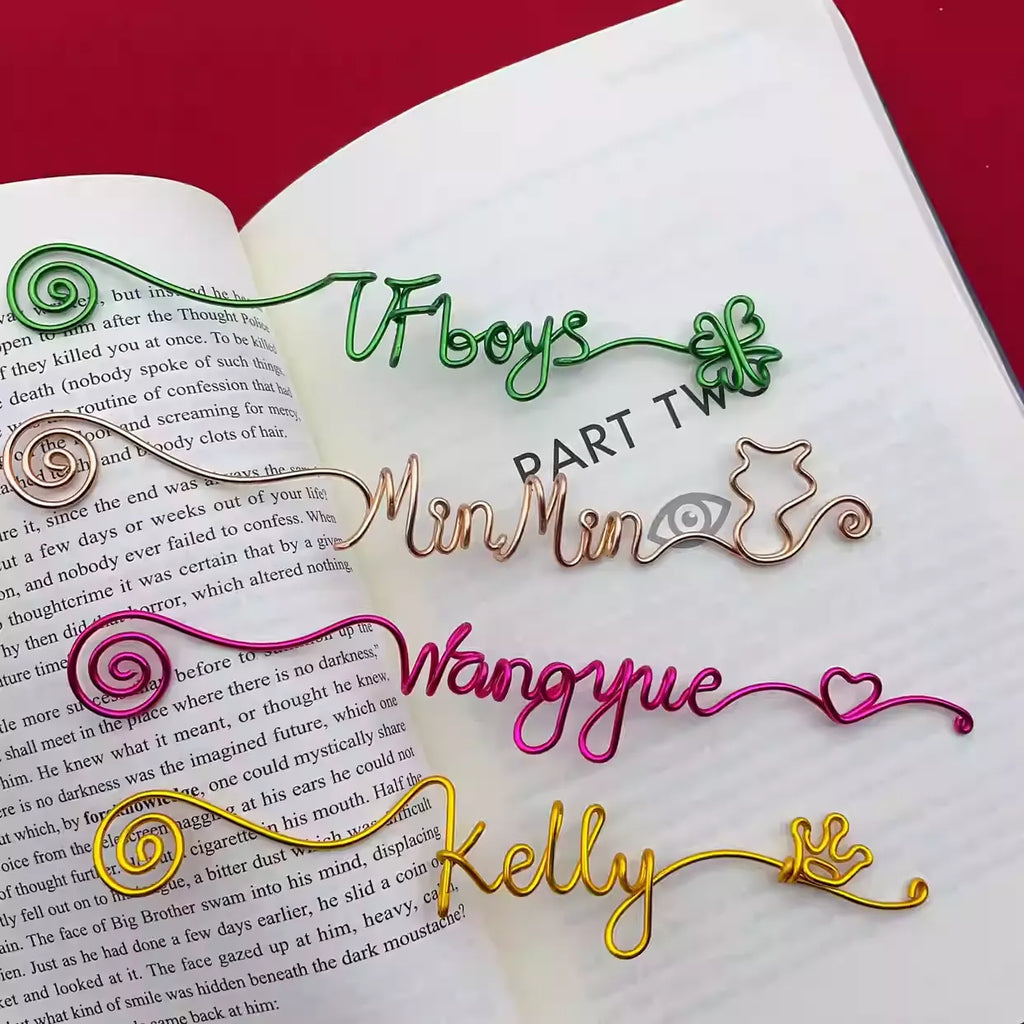 TFboys
PART TWO
MinMin
Wangyue
Kelly
, but ins ad he h
open to him after the Thought Police
f they killed you at once. To be killed
death (nobody spoke of such things,
routine of confession that had
the floor and screaming for mercy,
and bloody clots of hair.
re it, since the end was always the same
ut a few days or weeks out of your life?
on, and nobody ever failed to confess. When
thoughtcrime it was certain that by a given
hy then did that horror, which altered nothing,
ture time
le more success than before to summon up the
shall meet in the place where there is no darkness,"
him. He knew what it meant, or thought he knew.
ere is no darkness was the imagined future, which one
ut which, by foreknowledge, one could mystically share
oice from the telescreen nagging at his ears he could not
of thought further. cigarette in his mouth. Half the
tly fell out on to his tongue, a bitter dust which was difficult
ain. The face of Big Brother swam into his mind, displacing
ien. Just as he had done a few days earlier, he slid a coin o
ket and looked at it. The face gazed up at him, heavy, calm,
ut what kind of smile was hidden beneath the dark moustache?
came back at him: